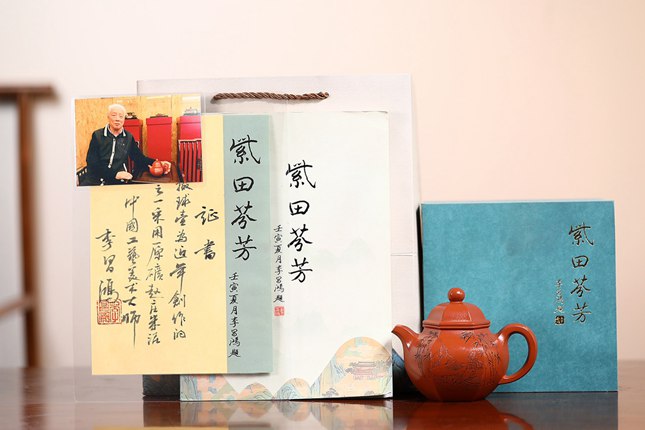 証書
掇球壶为近年创作的
之一采用原矿赵庄朱泥
中国工艺美术大师
李昌鸿
紫田芬芳
壬寅夏月李昌鸿题
紫田芬芳
壬寅夏月李昌鸿题
紫田芬芳